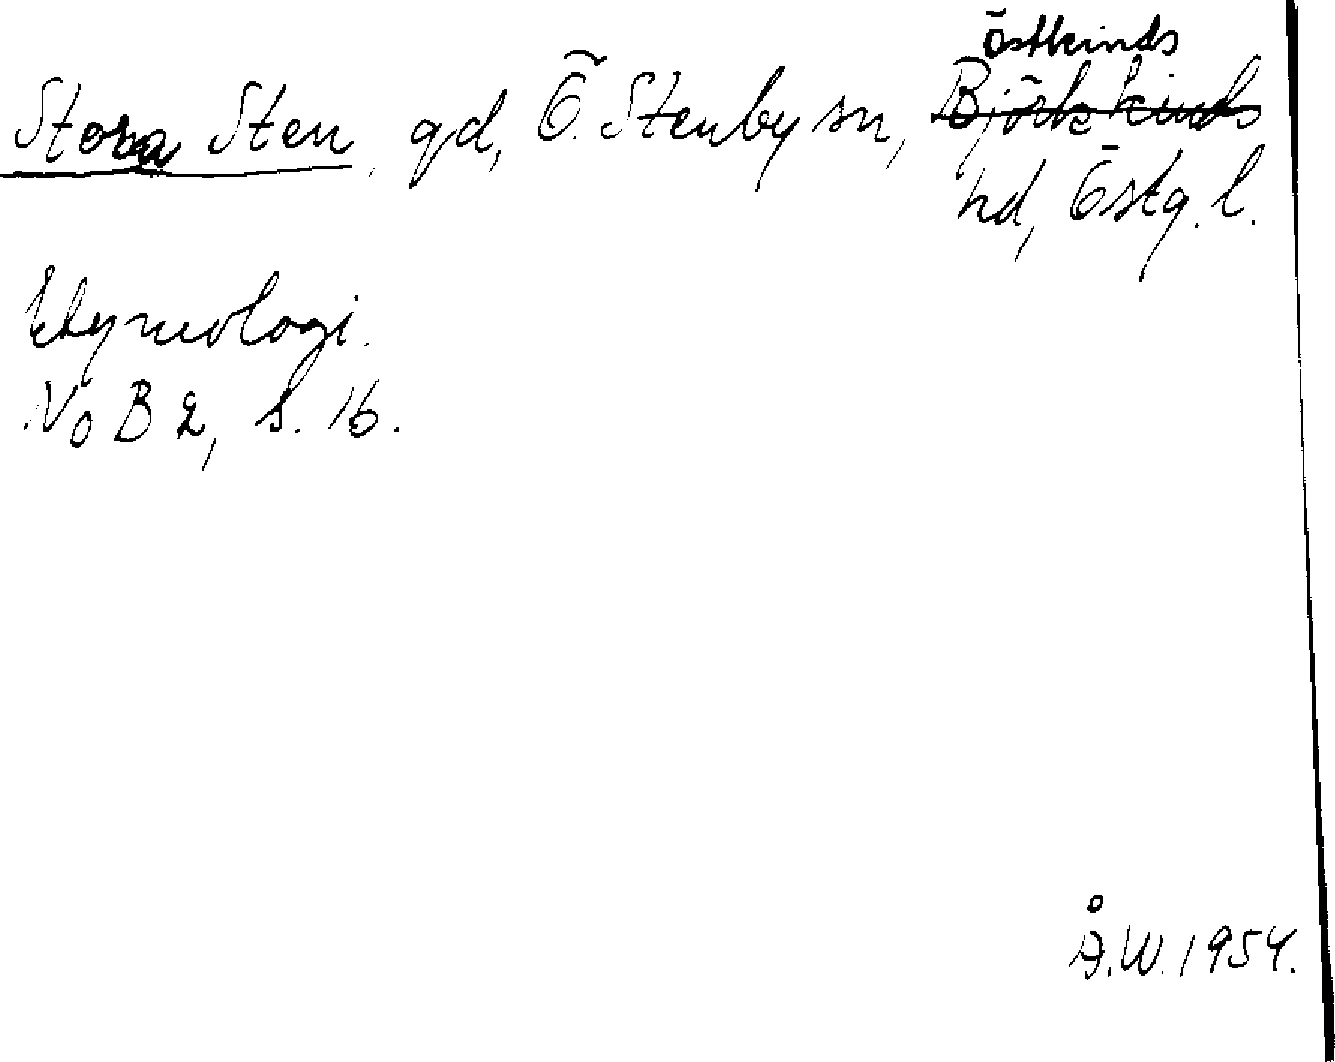 östkinds
Stora Sten, gd, Ö. Stenby sn, Björkkinds
hd, Östg. l.
Etymologi.
NoB 2, s. 16.
Å.W. 1954.